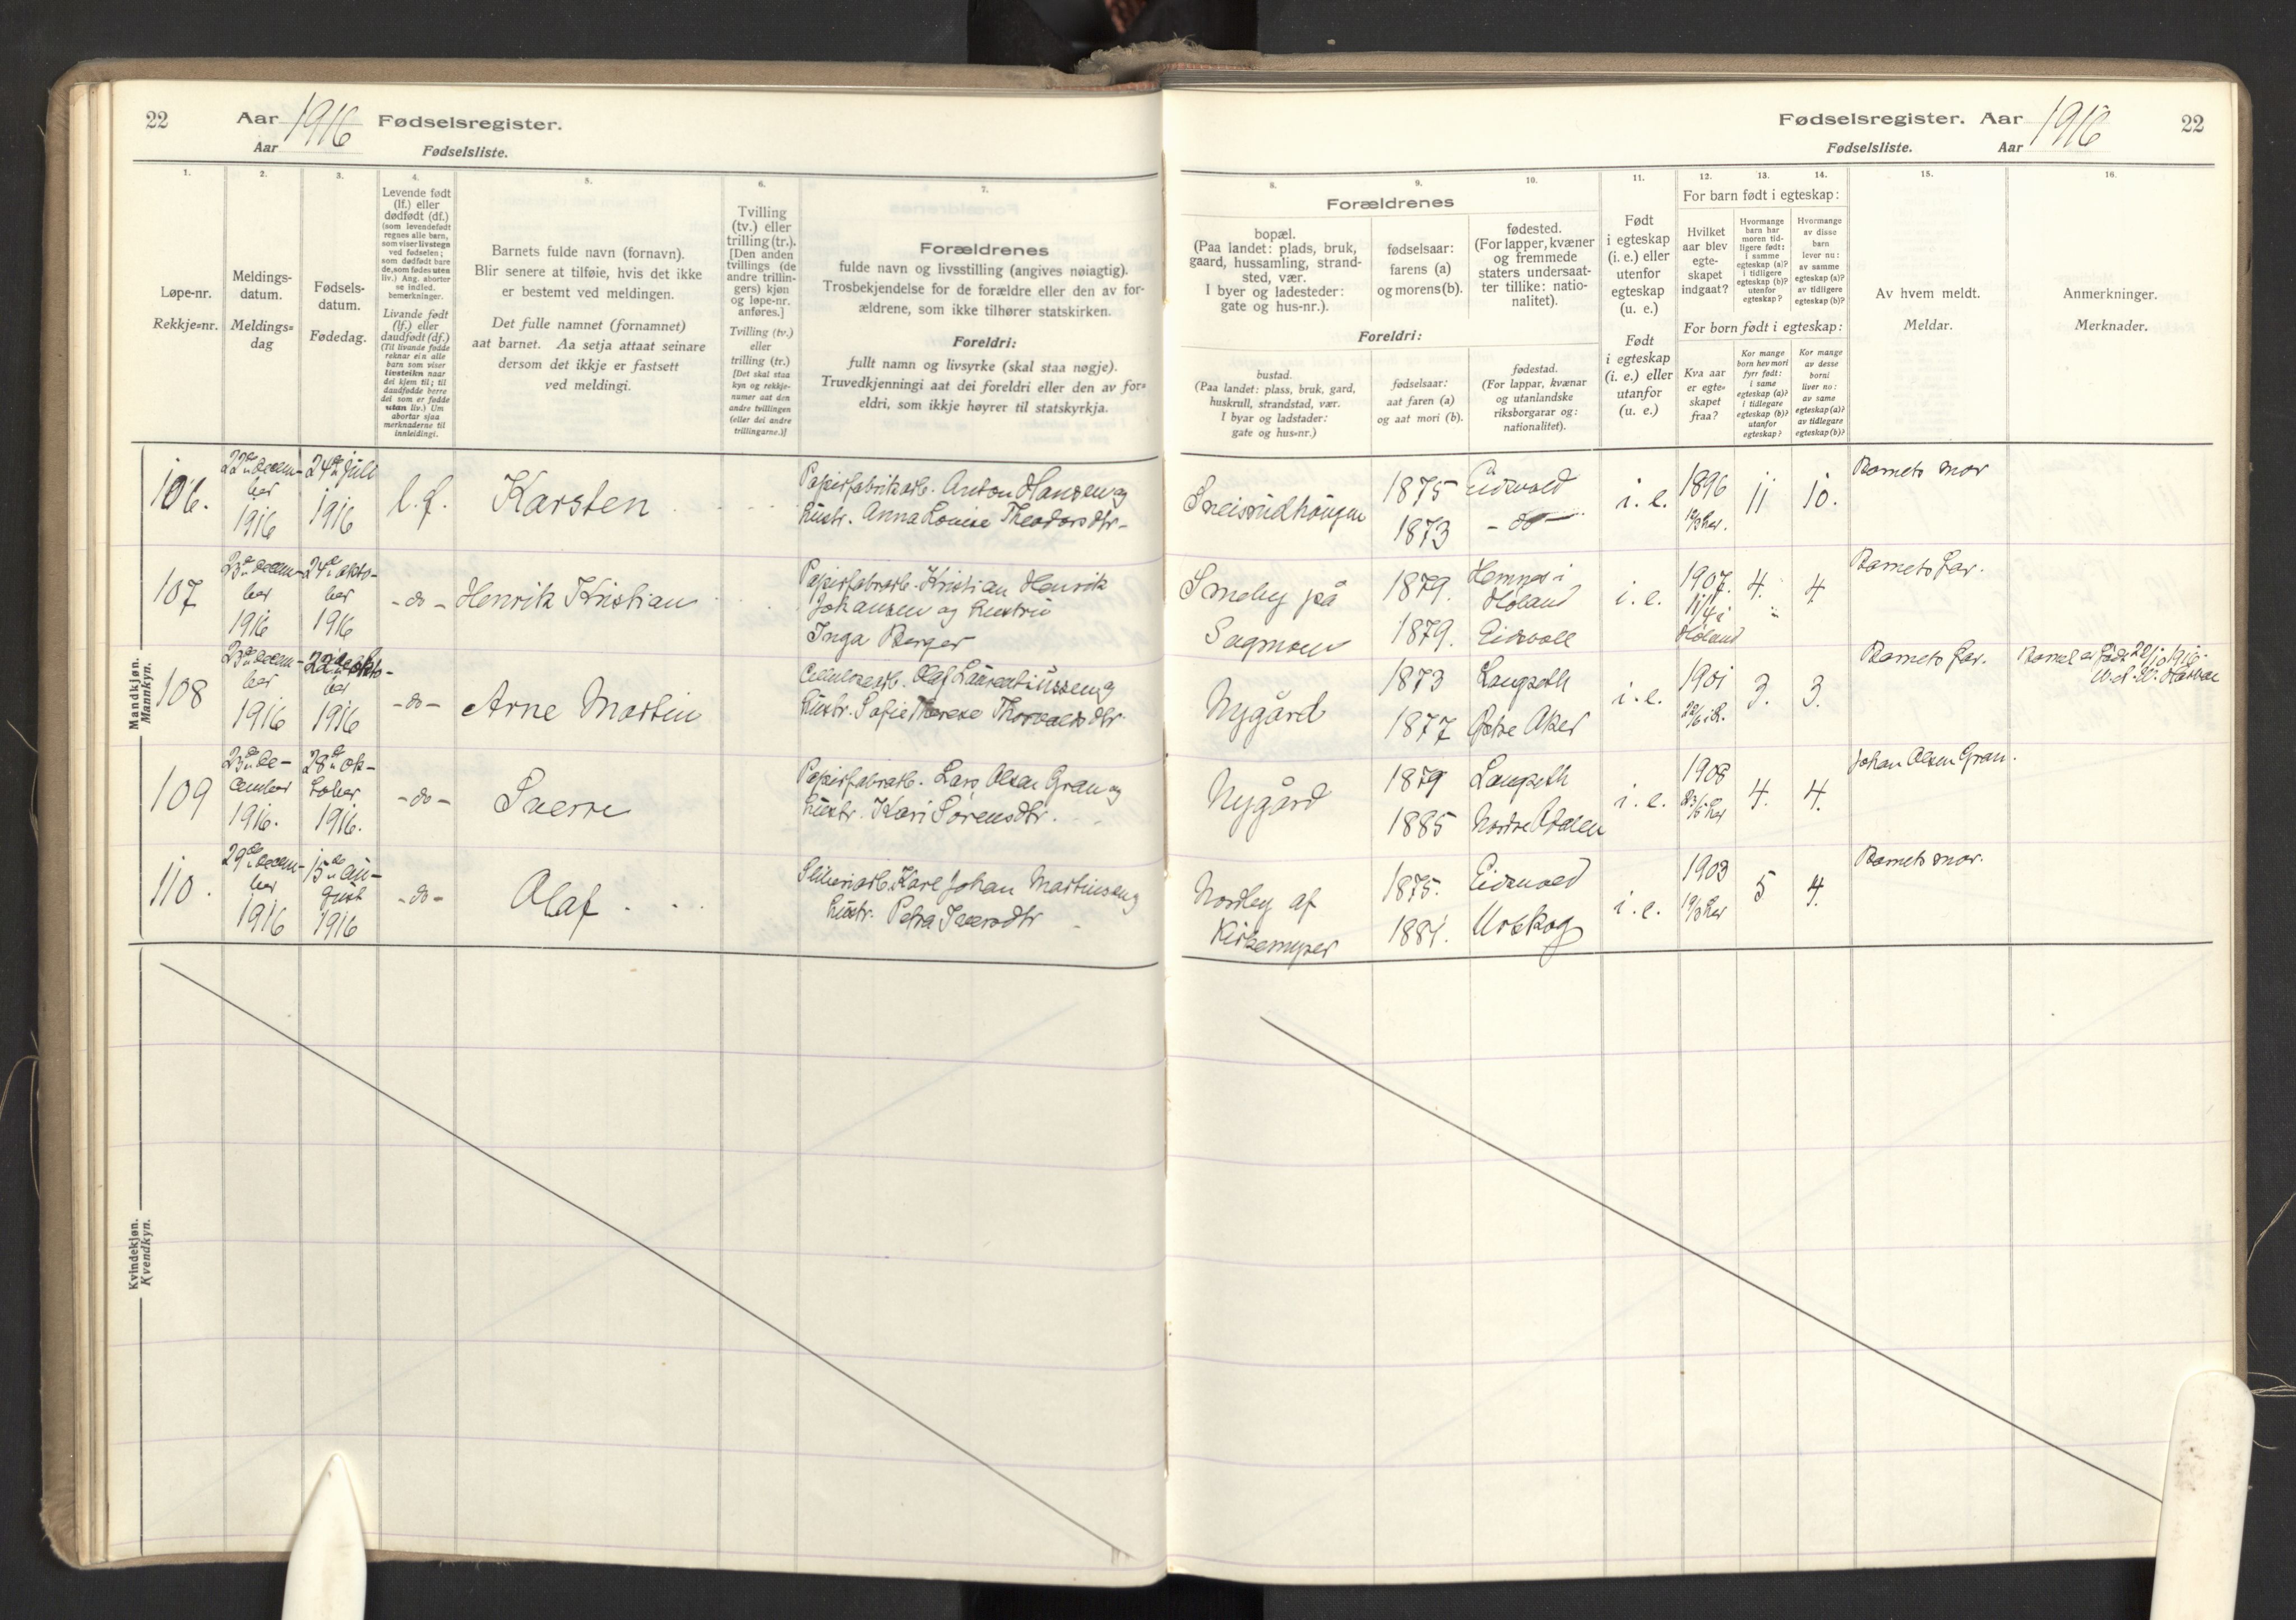 22 Aar 1916 Fødselsregister.
Aar Fødselsliste.
1.
Løpe-nr.
Rekkje=nr.
2.
Meldings-
datum.
Meldings=
dag
3.
Fødsels-
datum.
Fødedag.
4.
Levende født
(lf.) eller
dødfødt (df.)
(som levendefødt
regnes alle barn,
som viser livstegn
ved fødselen;
som dødfødt bare
de, som fødes uten
liv.) Ang. aborter
se indled.
bemerkninger.
Livande født
(lf.) eller
daudfødt (df.)
(Til livande fødde
reknar ein alle
barn som viser
livsteikn naar
dei kjem til; til
daudfødde berre
dei som er fødde
utan liv.) Um
abortar sjaa
merknaderne til
innleidingi.
5.
Barnets fulde navn (fornavn).
Blir senere at tilføie, hvis det ikke
er bestemt ved meldingen.
Det fulle namnet (fornamnet)
aat barnet. Aa setja attaat seinare
dersom det ikkje er fastsett
ved meldingi.
6.
Tvilling
(tv.) eller
trilling (tr.).
[Den anden
tvillings (de
andre trillin-
gers) kjøn
og løpe-nr.
anføres.]
Tvilling (tv.)
eller
trilling (tr.)
[Det skal staa
kyn og rekkje-
numer aat den
andre tvillingen
(eller dei andre
trillingarne.)]
7.
Forældrenes
fulde navn og livsstilling (angives nøiagtig).
Trosbekjendelse for de forældre eller den av for-
ældrene, som ikke tilhører statskirken.
Foreldri:
fullt namn og livsyrke (skal staa nøgje).
Truvedkjenningi aat dei foreldri eller den av for=
eldri, som ikkje høyrer til statskyrkja.
Mandkjøn.
Mannkyn.
106. 22de decem- 24de juli l.f. Karsten Papirfabrikarb. Anton Hansen og
ber 1916 hustr. Anna Louise Theodorsdtr-
1916
107 23de decem- 24de okto- -do- Henrik Kristian Papirfabrarb. Kristian Henrik
ber ber Johansen og hustru
1916 1916 Inga Berger
108 23de decem- 22de okto- -do- Arne Martin Cellulosearb. Olaf Laurentiussen og
ber ber hustr. Sofie Therese Thorvaldsdtr.
1916 1916
109 23de de- 28de ok- -do- Sverre Papirfabrarb. Lars Olsen Gran og
cember tober hustr. Kari Sørensdtr.
1916. 1916.
110. 29de decem- 15de au- -do- Olaf Sliperiarb. Karl Johan Martinsen og
ber gust hustr. Petra Iversdtr
1916 1916
Kvindekjøn.
Kvendkyn.
Fødselsregister. Aar 1916 22
Fødselsliste. Aar
Forældrenes
8.
bopæl.
(Paa landet: plads, bruk,
gaard, hussamling, strand-
sted, vær.
I byer og ladesteder:
gate og hus-nr.).
9.
fødselsaar:
farens (a)
og morens (b).
10.
fødested.
(For lapper, kvæner
og fremmede
staters undersaat-
ter tillike: natio-
nalitet).
Foreldri:
bustad.
(Paa landet: plass, bruk, gard,
huskrull, strandstad, vær.
I byar og ladstader:
gate og hus=nr.)
fødselsaar:
aat faren (a)
og aat mori (b).
fødestad.
(For lappar, kvænar
og utanlandske
riksborgarar og:
nationalitet).
11.
Født
i egteskap
(i. e.) eller
utenfor
egteskap
(u. e.)
Født
i egteskap
(i. e.) eller
utanfor
(u. e.)
For barn født i egteskap:
12.
Hvilket
aar blev
egte-
skapet
indgaat?
13.
Hvormange
barn har
moren tid-
ligere født:
i samme
egteskap (a)?
i tidligere
egteskap (b)?
utenfor
egteskap?
14.
Hvormange
av disse
barn
lever nu:
av samme
egteskap (a)?
av tidligere
egteskap (b)?
For born født i egteskap:
Kva aar
er egte=
skapet
fraa?
Kor mange
born hev mori
fyrr født:
i same
egteskap (a)?
i tidlegare
egteskap (b)?
utanfor
egteskap?
Kor mange
av desse
borni
liver no:
av same
egteskap (a)?
av tidlegare
egteskap (b)?
15.
Av hvem meldt.
Meldar.
16.
Anmerkninger.
Merknader.
1875 Eidsvold i. e. 1896 11 10. Barnets mor
1873 -do-
Smeby på 1879. Hemnes i i. e. 1907. 4. 4. Barnets far.
Høland 11/4 i
Sagmoen 1879. Eidsvold Høland
Nygård 1873 Langseth i. e. 1901 3. 3. Barnets far. Barnet er født 22/10 1916.
1877 Østre Aker
Nygård 1879 Langseth i. e. 1908 4. 4. Johan Olsen Gran.
1885 Nordre Odalen
Nordby af 1875. Eidsvold i. e. 1903 5 4. Barnets mor.
Kirkemyrer 1881. Urskog